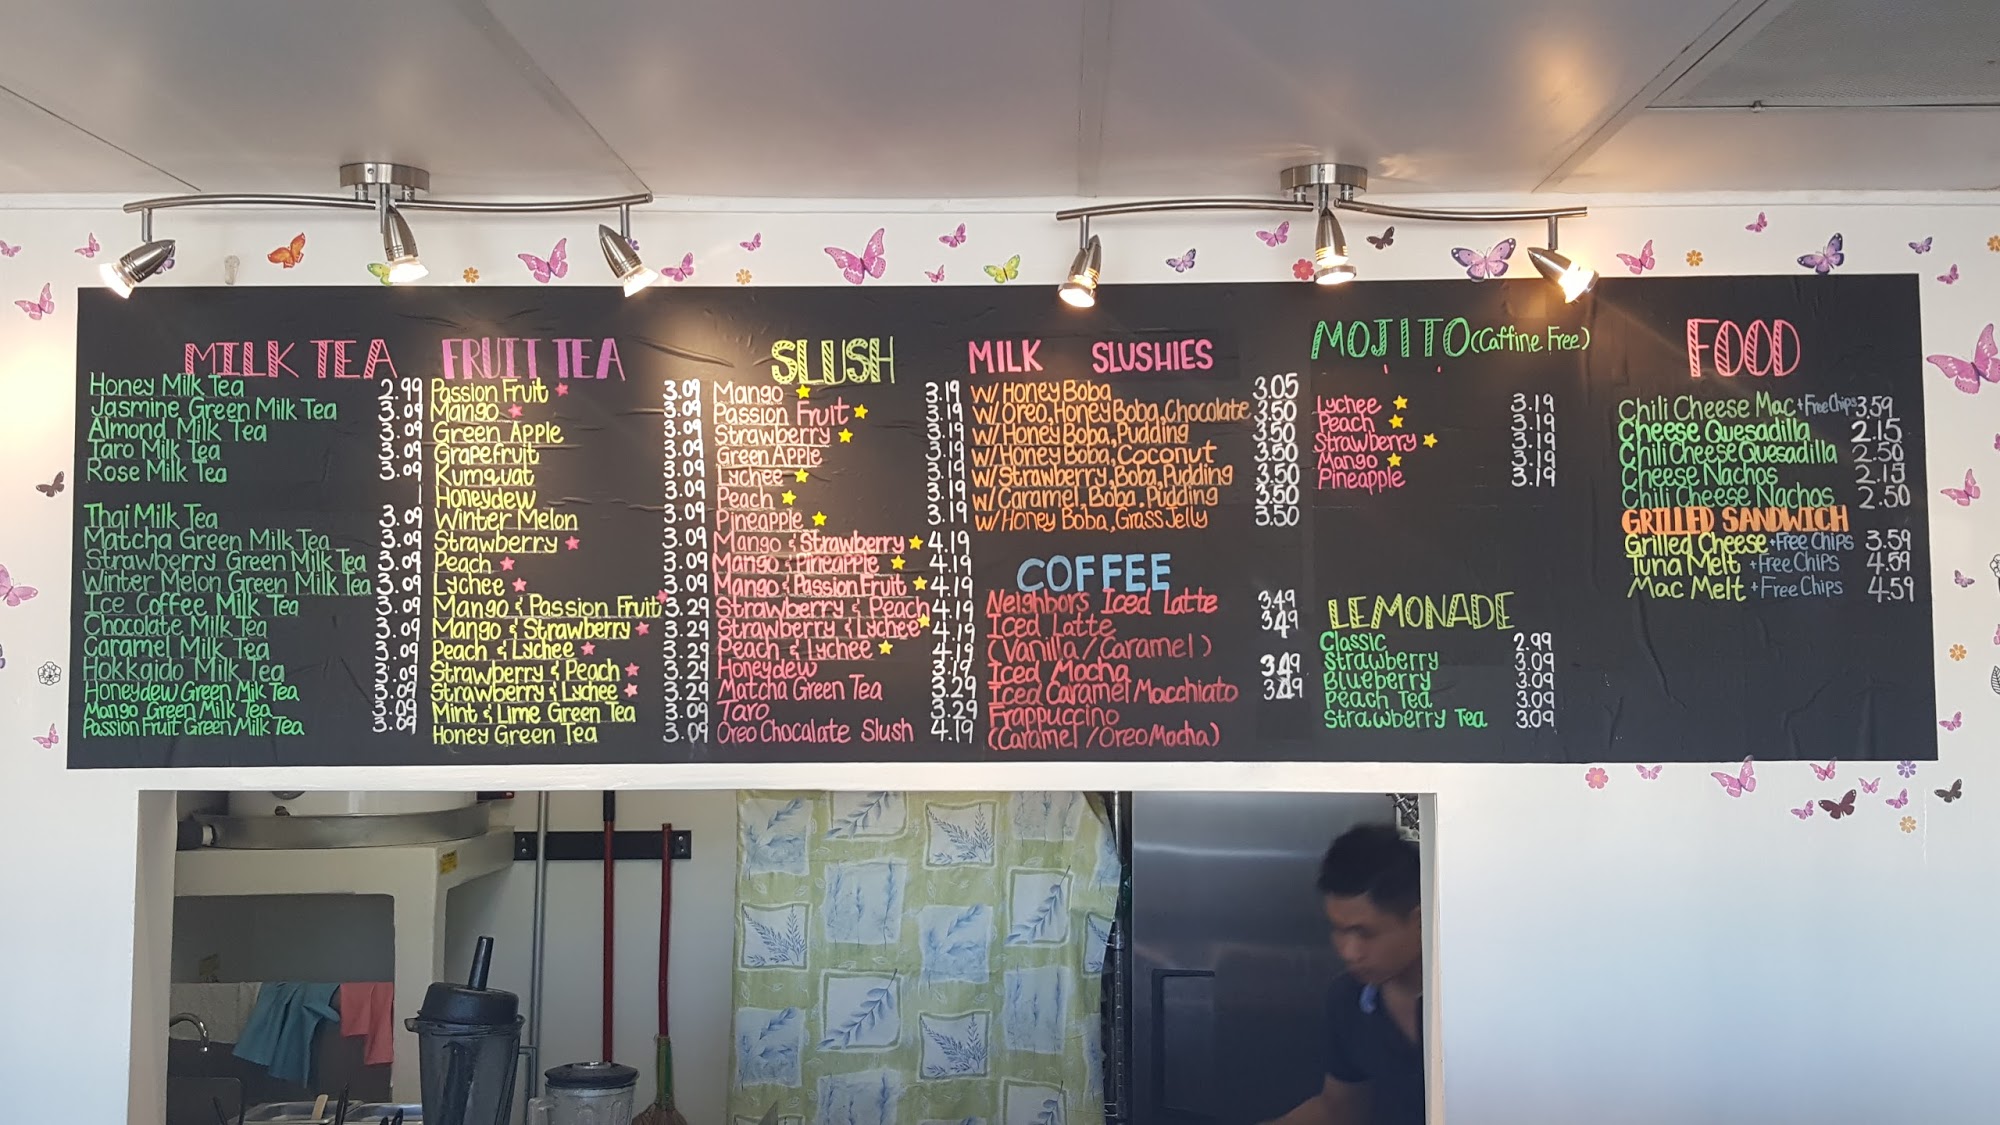 MILK TEA
Honey Milk Tea 2.99
Jasmine Green Milk Tea 3.09
Almond Milk Tea 3.09
Taro Milk Tea 3.09
Rose Milk Tea 3.09
Thai Milk Tea 3.09
Matcha Green Milk Tea 3.09
Strawberry Green Milk Tea 3.09
Winter Melon Green Milk Tea 3.09
Ice Coffee Milk Tea 3.09
Chocolate Milk Tea 3.09
Caramel Milk Tea 3.09
Hokkaido Milk Tea 3.09
Honeydew Green Milk Tea 3.09
Mango Green Milk Tea 3.09
Passion Fruit Green Milk Tea 3.09
FRUIT TEA
Passion Fruit 3.09
Mango 3.09
Green Apple 3.09
Grapefruit 3.09
Kumquat 3.09
Honeydew 3.09
Winter Melon 3.09
Strawberry 3.09
Peach 3.09
Lychee 3.09
Mango & Passion Fruit 3.29
Mango & Strawberry 3.29
Peach & Lychee 3.29
Strawberry & Peach 3.29
Strawberry & Lychee 3.29
Mint & Lime Green Tea 3.09
Honey Green Tea 3.09
SLUSH
Mango 3.19
Passion Fruit 3.19
Strawberry 3.19
Green Apple 3.19
Lychee 3.19
Peach 3.19
Pineapple 3.19
Mango & Strawberry 4.19
Mango & Pineapple 4.19
Mango & Passion Fruit 4.19
Strawberry & Peach 4.19
Strawberry & Lychee 4.19
Peach & Lychee 4.19
Honeydew 3.19
Matcha Green Tea 3.29
Taro 3.29
Oreo Chocolate Slush 4.19
MILK SLUSHIES
w/ Honey Boba 3.05
w/ Oreo, Honey Boba, Chocolate 3.50
w/ Honey Boba, Pudding 3.50
w/ Honey Boba, Coconut 3.50
w/ Strawberry, Boba, Pudding 3.50
w/ Caramel, Boba, Pudding 3.50
w/ Honey Boba, Grass Jelly 3.50
COFFEE
Neighbors Iced Latte 3.49
Iced Latte 3.49
(Vanilla / Caramel)
Iced Mocha 3.49
Iced Caramel Macchiato 3.49
Frappuccino
(Caramel / Oreo Mocha)
MOJITO (Caffine Free)
Lychee 3.19
Peach 3.19
Strawberry 3.19
Mango 3.19
Pineapple 3.19
LEMONADE
Classic 2.99
Strawberry 3.09
Blueberry 3.09
Peach Tea 3.09
Strawberry Tea 3.09
FOOD
Chili Cheese Mac + Free Chips 3.59
Cheese Quesadilla 2.15
Chili Cheese Quesadilla 2.50
Cheese Nachos 2.15
Chili Cheese Nachos 2.50
GRILLED SANDWICH
Grilled Cheese + Free Chips 3.59
Tuna Melt + Free Chips 4.59
Mac Melt + Free Chips 4.59